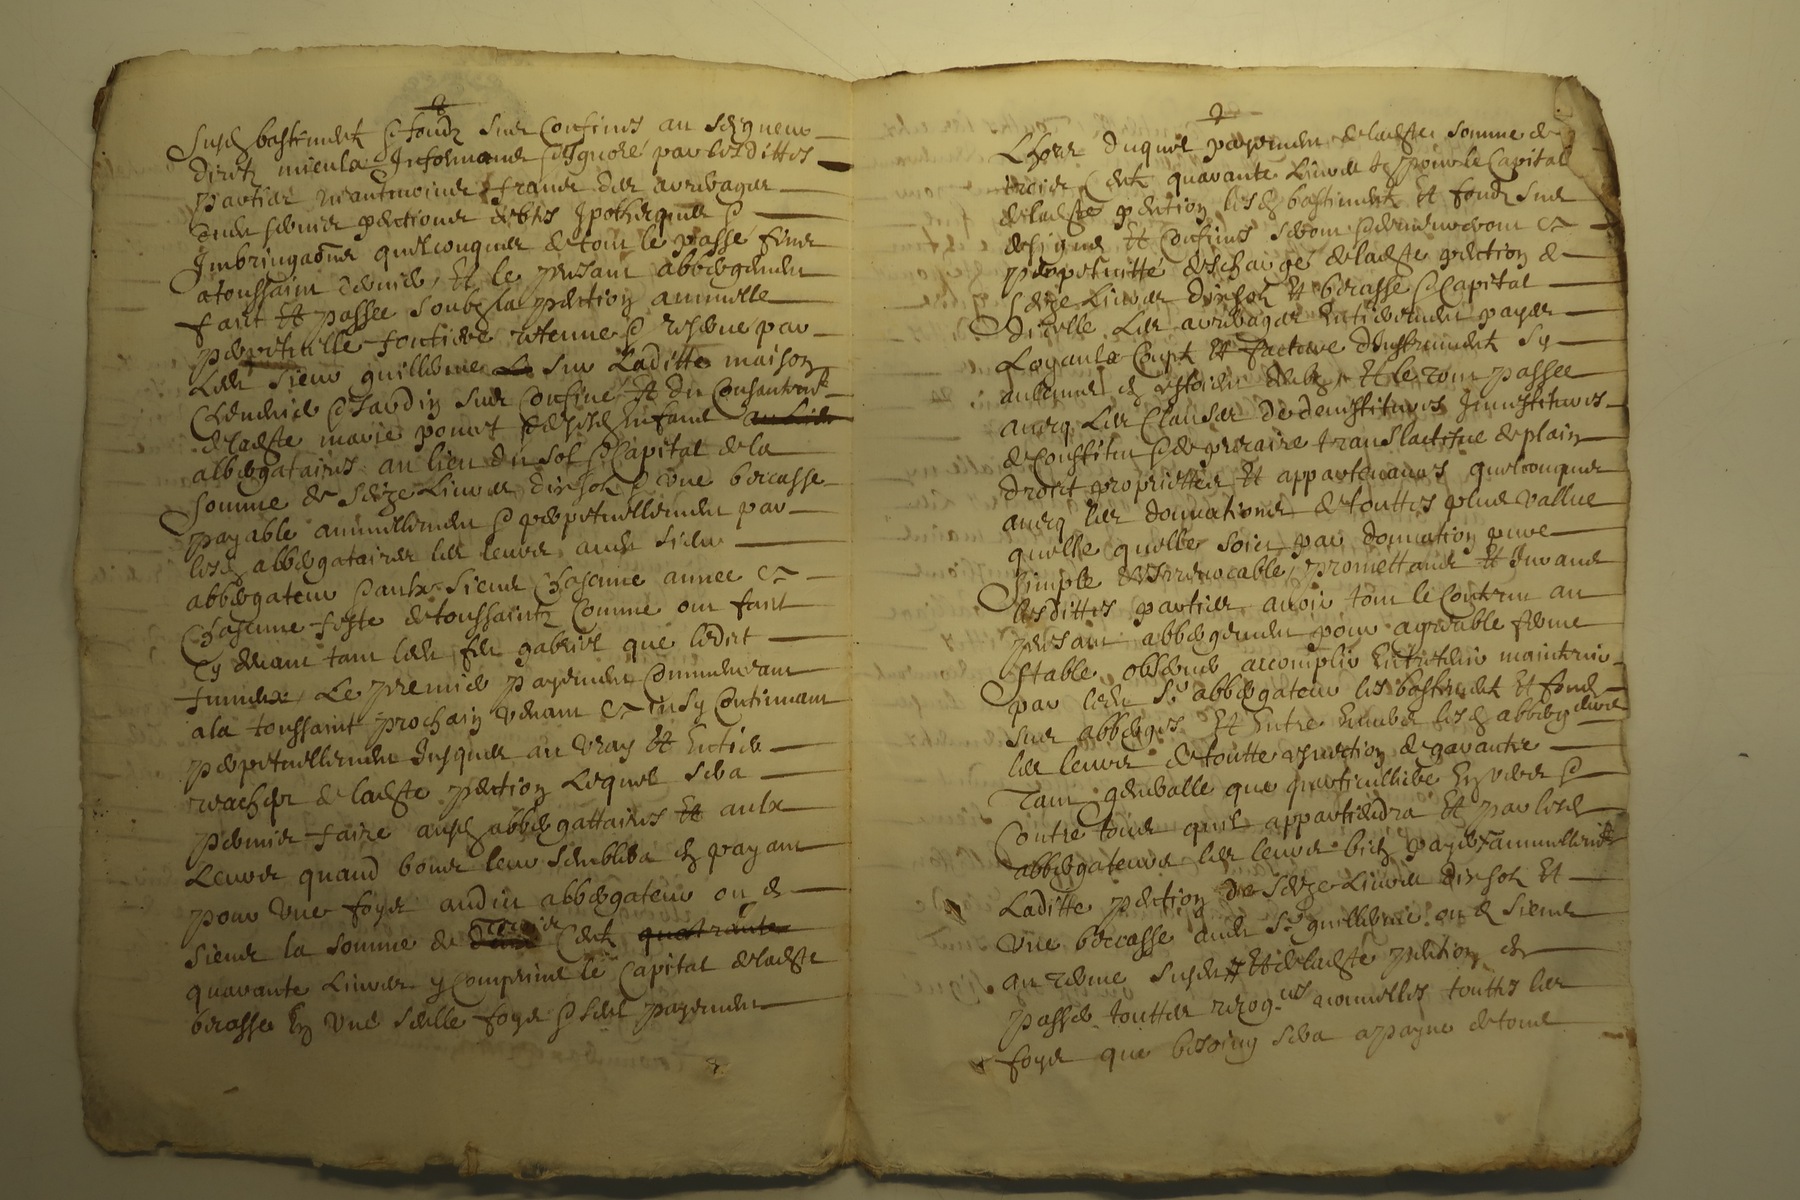 Susd bastiment & fondz sus confins au seigneur
direct mieulx Informé & Ignoré par lesdittes
parties neantmoins franc des arrerages
cens servis pections debtes Ipotheques &
Imbringaõns quelconques de tout le passé fins
a toussaint dernier, Et le presant abbergement
faict Et passée soubz la pection annuelle
perpetuelle fonciere retenue & reservée par
led sieur guillerme sur Laditte maison
& Jardin sus confiné Et du consantement
de ladste marie pour et enfans
albergataires au lieu du sol & Capital de la
somme de seize Livres dix solz & une becasse
payable annuellement & perpetuellement par
lesd abbergataires les leurs aud sieur
abbergateur & aulx siens Chascune année &
Chascune feste de toussaintz Comme ont faict
Cy devant tant led feu gabriel que ledict
Le premier payement Commencant
a la toussaint prochain venant & ainsy Continuant
perpetuellement Jusques au vray Et Entier
reachept de ladste pection Lequel sera
permis faire ausd abbergattaires Et aulx
Leurs quand bon leur semblera En payant
pour une foys audit abbergateur ou es
siens la somme de trois Cent
quarante Livres y Comprins le Capital de ladste
becasse En une seulle foys & seul payement
Lhors duquel payement de ladste somme de
trois Cent quarante Livres pour le Capital
de ladste pection lesd bastiment Et fondz sus
designés Et Confinés seront & demeureront &
perpetuitté deschargé de ladste pection de
seize Livres dix solz Et becasse & Capital
dicelle Les arrerages Entierement payés
Loyaulx Coupt Et facture dinstrument sy
aulcuns En estoient deubz, Et le tout passée
avecq Les Clauses de demistitures Inmistitures
de Constitut & de precaire translactifve de plain
droict proprietté Et appartenances quelconques
avecq les donnations de touttes plus vallue
quelle quelle soit par donnation pure
simple & Irrevocable, promettans Et Jurans
lesdittes parties avoir tout le Contenu au
presant abbergement pour agreable ferme
stable observer accomplir Entretenir maintenir
par led Sr abbergateur les bastiment Et fondz
sus abbergés Et Entre Envers lesd abbergataires
les leurs de toutte eviction & garantie
Tant generalle que particulliere Envers &
Contre tous quil appartiendra Et par lesd
abbergateurs les leurs bien payer annuellement
Laditte pection de seize Livres dix solz Et
une becasse aud Sr guillerme ou es siens
au terme susdit Et de ladste pection En
passer touttes recogces nouvelles touttes les
foys que besoing sera a payne de tous